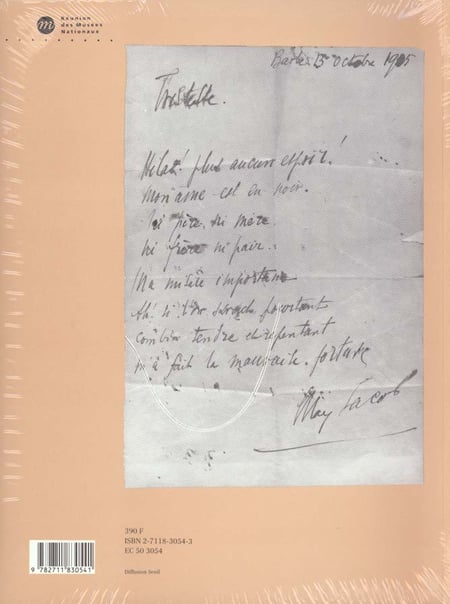 Réunion
des Musées
Nationaux
5 octobre 1905
Tristesse.
Hélas! plus aucun espoir!
mon ame est en noir.
Ni père. ni mère
ni frère ni paire.
Ma misère importune
Ah! si l'on savait pourtant
combien tendre et repentant
m'a fait la mauvaise fortune
Max Jacob
390 F
ISBN 2-7118-3054-3
EC 50 3054
9 782711 830541
Diffusion Seuil